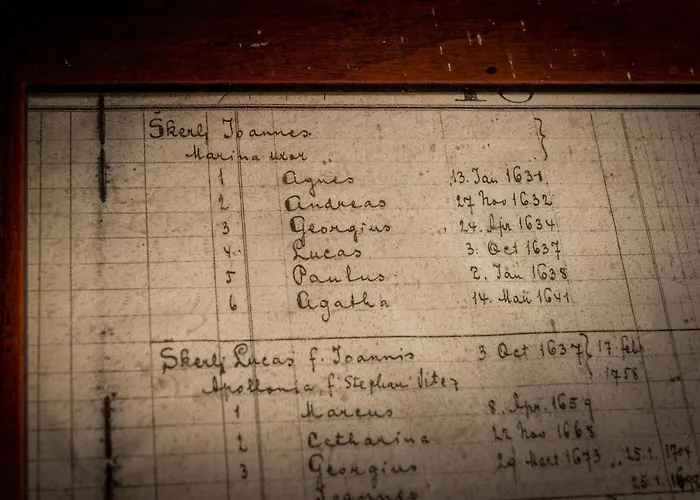 Škerlj Joannes
Marina uxor
1 Agnes 13. Jan 1631
2 Andreas 27 Nov 1632
3 Georgius 24. Apr 1634
4. Lucas 3. Oct 1637
5 Paulus 2. Jan 1638
6 Agatha 14. Maii 1641
Škerlj Lucas f. Joannis 3 Oct 1637 } 17. feb
Apollonia f. Stephani Vitez 1758
1 Marcus 8. Apr. 1659
2 Catharina 22 Nov 1668
3 Georgius 29 Mart 1673 25.1. 1704
Joannes 25.1.